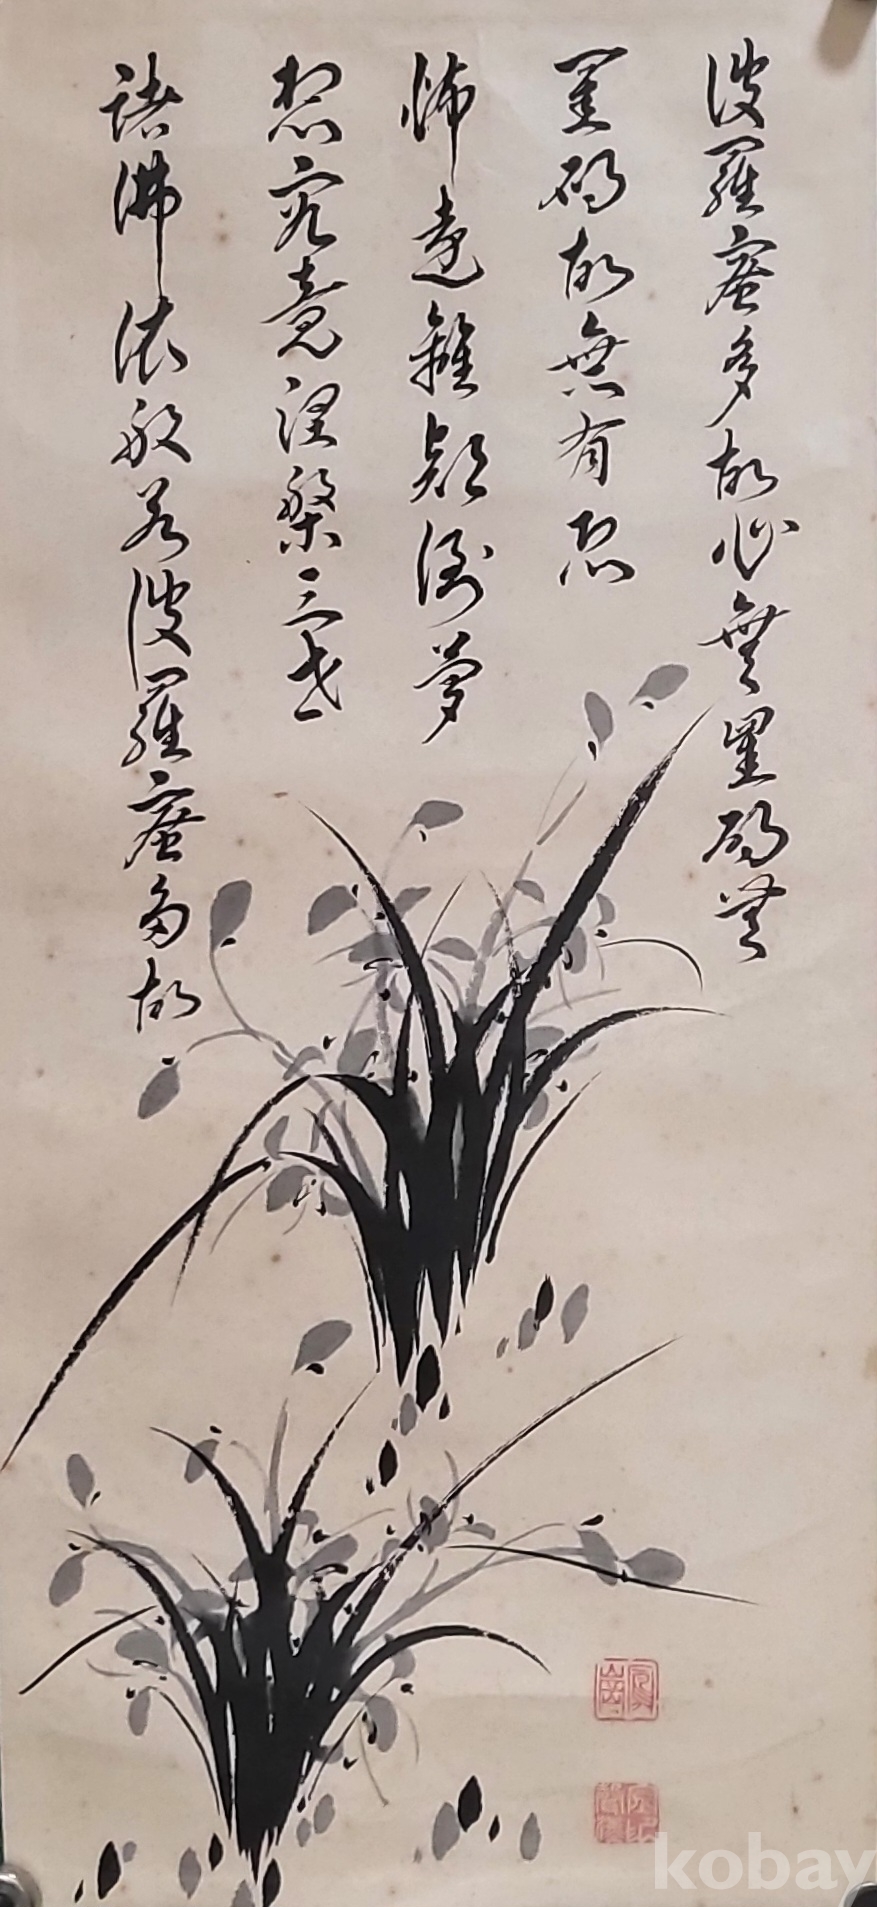 波羅蜜多故心無罣碍無
罣碍故無有恐
怖遠離顛倒夢
想究竟涅槃三世
諸佛依般若波羅蜜多故
kobay